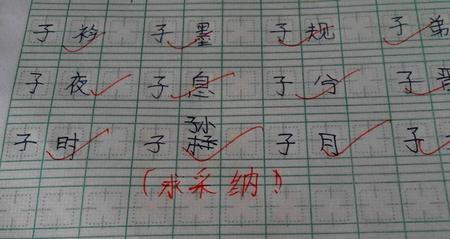 子 衿 子 墨 子 规 子
子 夜 子 息 子 分 子
子 时 子 孙 子 目 子
（求采纳！）